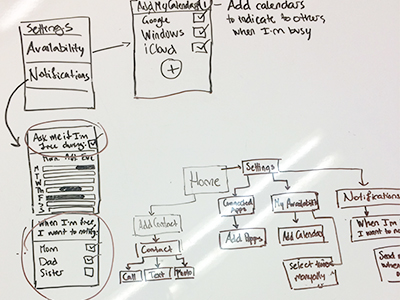 Settings
Availability
Notifications
Add My Calendar
Google
Windows
iCloud
+
Add calendars
to indicate to others
when I'm busy
Ask me if I'm
free during:
Morn Aft Eve
M
T
W
Th
F
S
S
When I'm free,
I want to notify:
Mom
Dad
Sister
Home
Settings
Add Contact
Contact
Call
Text
Photo
Connected
Apps
Add Apps
My Availability
Add Calendar
Select times
manually
Notifications
When I'm
I want to no
Send
when